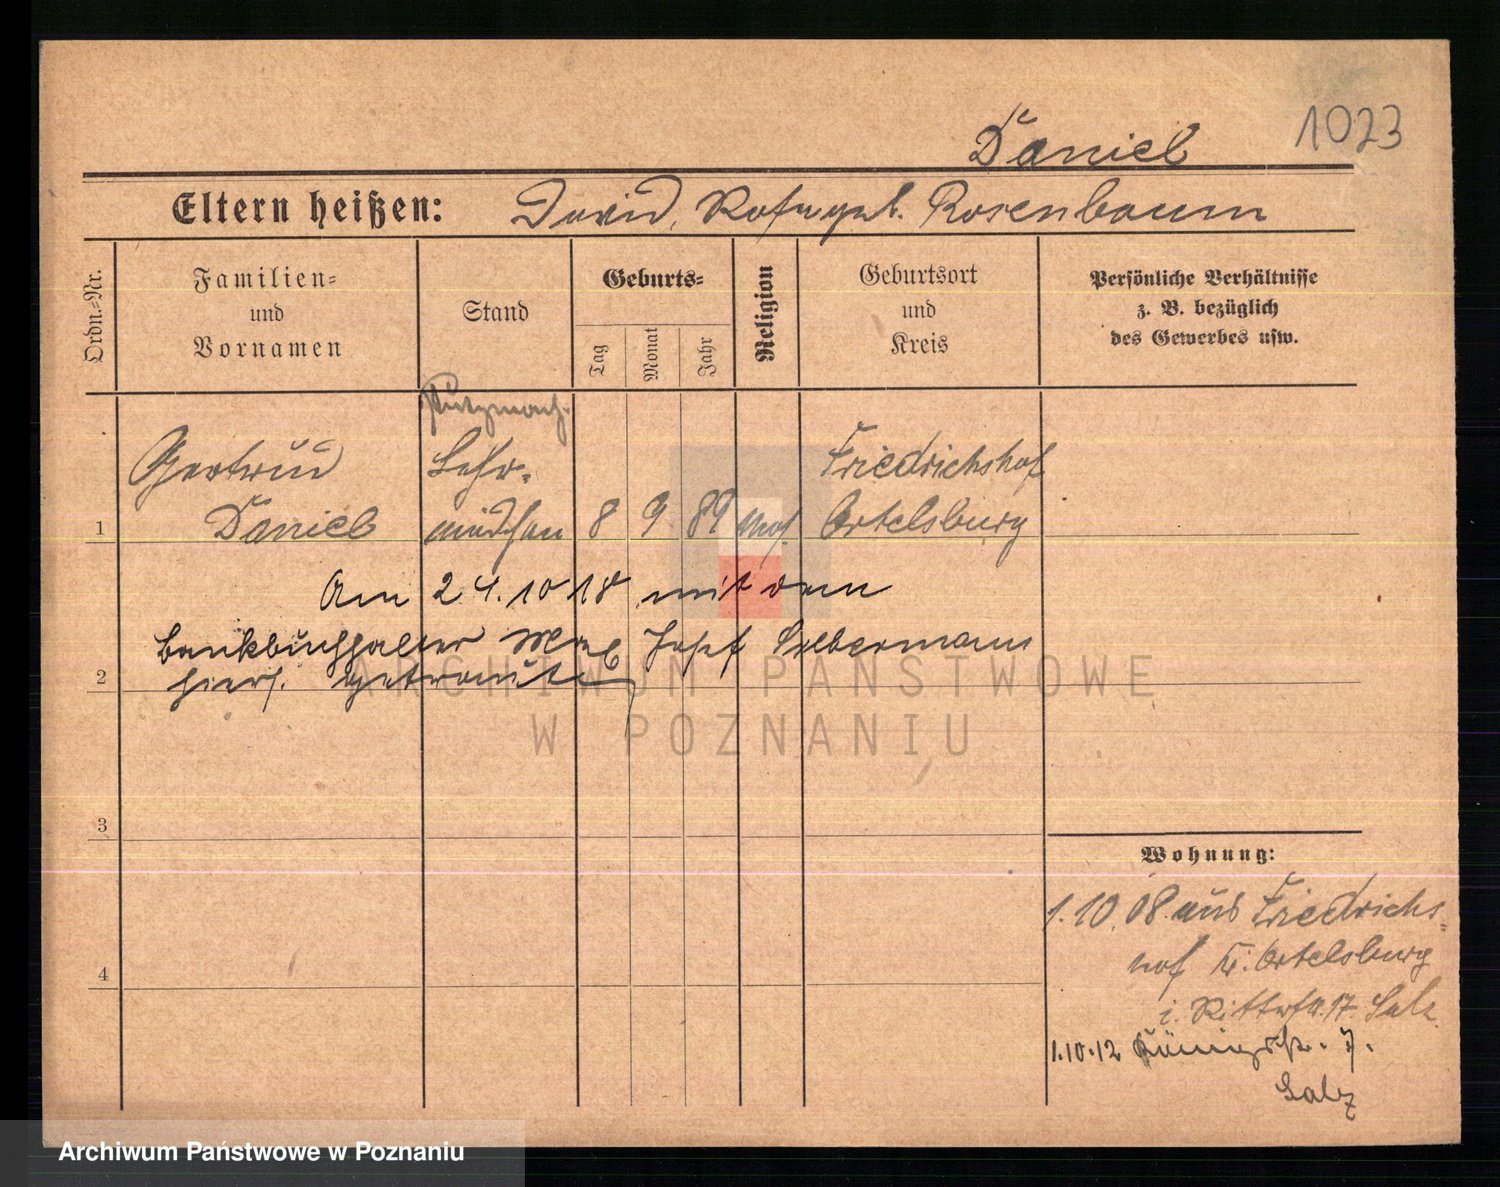 1023
Daniel
Eltern heißen: David, Rosa geb. Rosenbaum
Ordn.-Nr.
Familien-
und
Vornamen
Stand
Geburts-
Tag
Monat
Jahr
Religion
Geburtsort
und
Kreis
Persönliche Verhältnisse
z. B. bezüglich
des Gewerbes usw.
Putzmach.
Gertrud Lehr- Friedrichshof
1 Daniel mädchen 8 9 89 mos. Ortelsburg
Am 24.10 18 mit dem
Bankbuchhalter Josef Silbermann
2 hiers. getraut
ARCHIWUM PAŃSTWOWE
W POZNANIU
3
Wohnung:
1.10.08 aus Friedrichs-
hof Kr. Ortelsburg
4
i. 17. Salz
1.10.12 Königstr. 7.
Salz
Archiwum Państwowe w Poznaniu